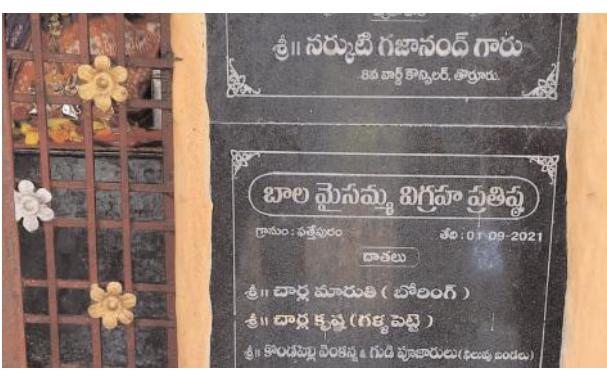 శ్రీ॥ నర్కుటి గజానంద్ గారు
8వ వార్డ్ కౌన్సిలర్, తొర్రూరు.
బాల మైసమ్మ విగ్రహ ప్రతిష్ఠ
గ్రామం : ఫత్తేపురం తేది : 01-09-2021
దాతలు
శ్రీ॥ చార్ల మారుతి ( బోరింగ్ )
శ్రీ॥ చార్ల కృష్ణ ( గళ్ళ పెట్టె )
శ్రీ॥ కొండపల్లి వెంకన్న & గుడి పూజారులు (నిలువు బండలు)